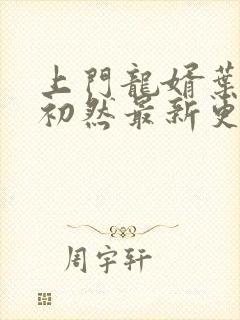 上門龍婿葉
初然最新更
周宇軒